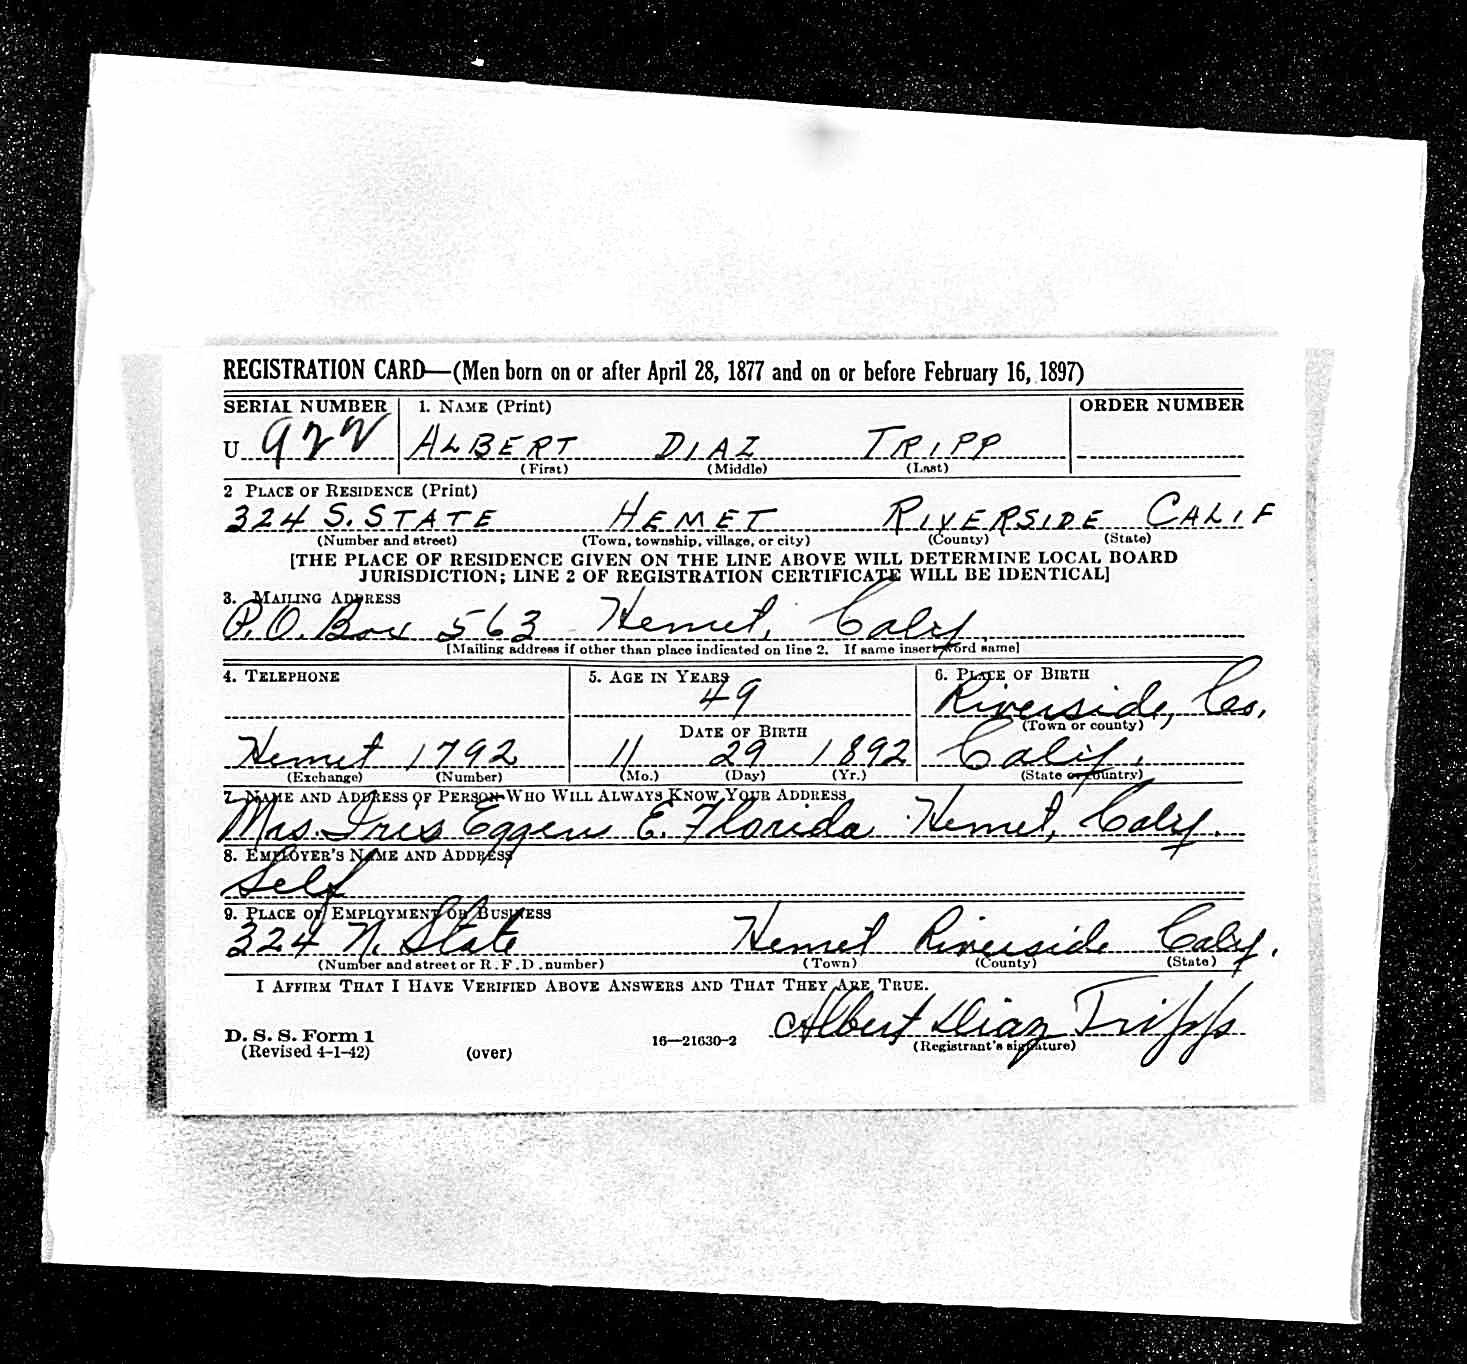 REGISTRATION CARD—(Men born on or after April 28, 1877 and on or before February 16, 1897)
SERIAL NUMBER 1. NAME (Print) ORDER NUMBER
U 922 ALBERT DIAZ TRIPP
(First) (Middle) (Last)
2 PLACE OF RESIDENCE (Print)
324 S. STATE HEMET RIVERSIDE CALIF
(Number and street) (Town, township, village, or city) (County) (State)
[THE PLACE OF RESIDENCE GIVEN ON THE LINE ABOVE WILL DETERMINE LOCAL BOARD
JURISDICTION; LINE 2 OF REGISTRATION CERTIFICATE WILL BE IDENTICAL]
3. MAILING ADDRESS
P.O. Box 563 Hemet, Calif.
[Mailing address if other than place indicated on line 2. If same insert word same]
4. TELEPHONE 5. AGE IN YEARS 6. PLACE OF BIRTH
49 Riverside, Co.
DATE OF BIRTH (Town or county)
Hemet 1792 11 29 1892 Calif.
(Exchange) (Number) (Mo.) (Day) (Yr.) (State or country)
7. NAME AND ADDRESS OF PERSON WHO WILL ALWAYS KNOW YOUR ADDRESS
Mrs. Iris Eggens E. Florida Hemet, Calif.
8. EMPLOYER'S NAME AND ADDRESS
Self
9. PLACE OF EMPLOYMENT OR BUSINESS
324 N. State Hemet Riverside Calif.
(Number and street or R. F. D. number) (Town) (County) (State)
I AFFIRM THAT I HAVE VERIFIED ABOVE ANSWERS AND THAT THEY ARE TRUE.
Albert Diaz Tripp
D. S. S. Form 1 16—21630-2 (Registrant's signature)
(Revised 4-1-42) (over)